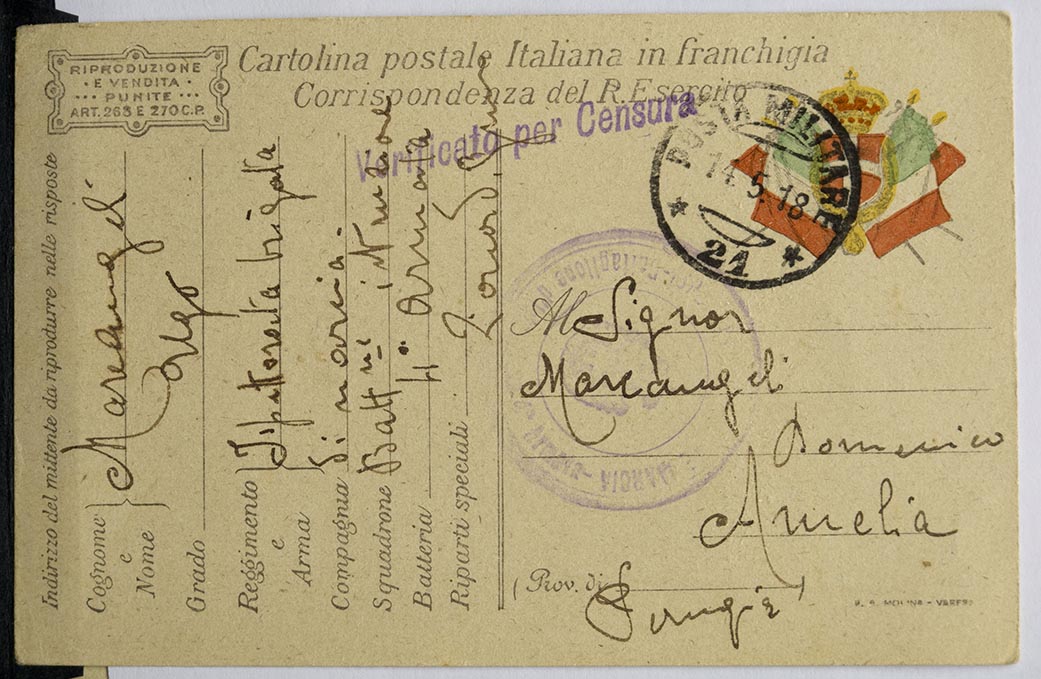 RIPRODUZIONE
E VENDITA
PUNITE
ART. 263 E 270 C.P.
Cartolina postale Italiana in franchigia
Corrispondenza del R. Esercito
Verificato per Censura
POSTA MILITARE
14.5.18
21
Indirizzo del mittente da riprodurre nelle risposte
Cognome e Nome
Marcangeli
Grado
Reggimento e Arma
brigata
Compagnia
Squadrone
Batteria
4ª armata
Riparti speciali
Zona
Al Signor
Marcangeli
Domenico
Amelia
(Prov. di
)
Perugia
MARCIA
MOLINA - VARESE